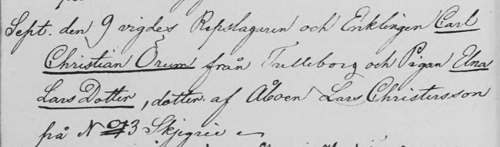 Sept. den 9 vigdes Repslagaren och Enklingen Carl
Christian Örum från Trelleborg och Pigan Elna
Lars Dotter, dotter af Åboen Lars Christersson
på No 43 Skjegrie